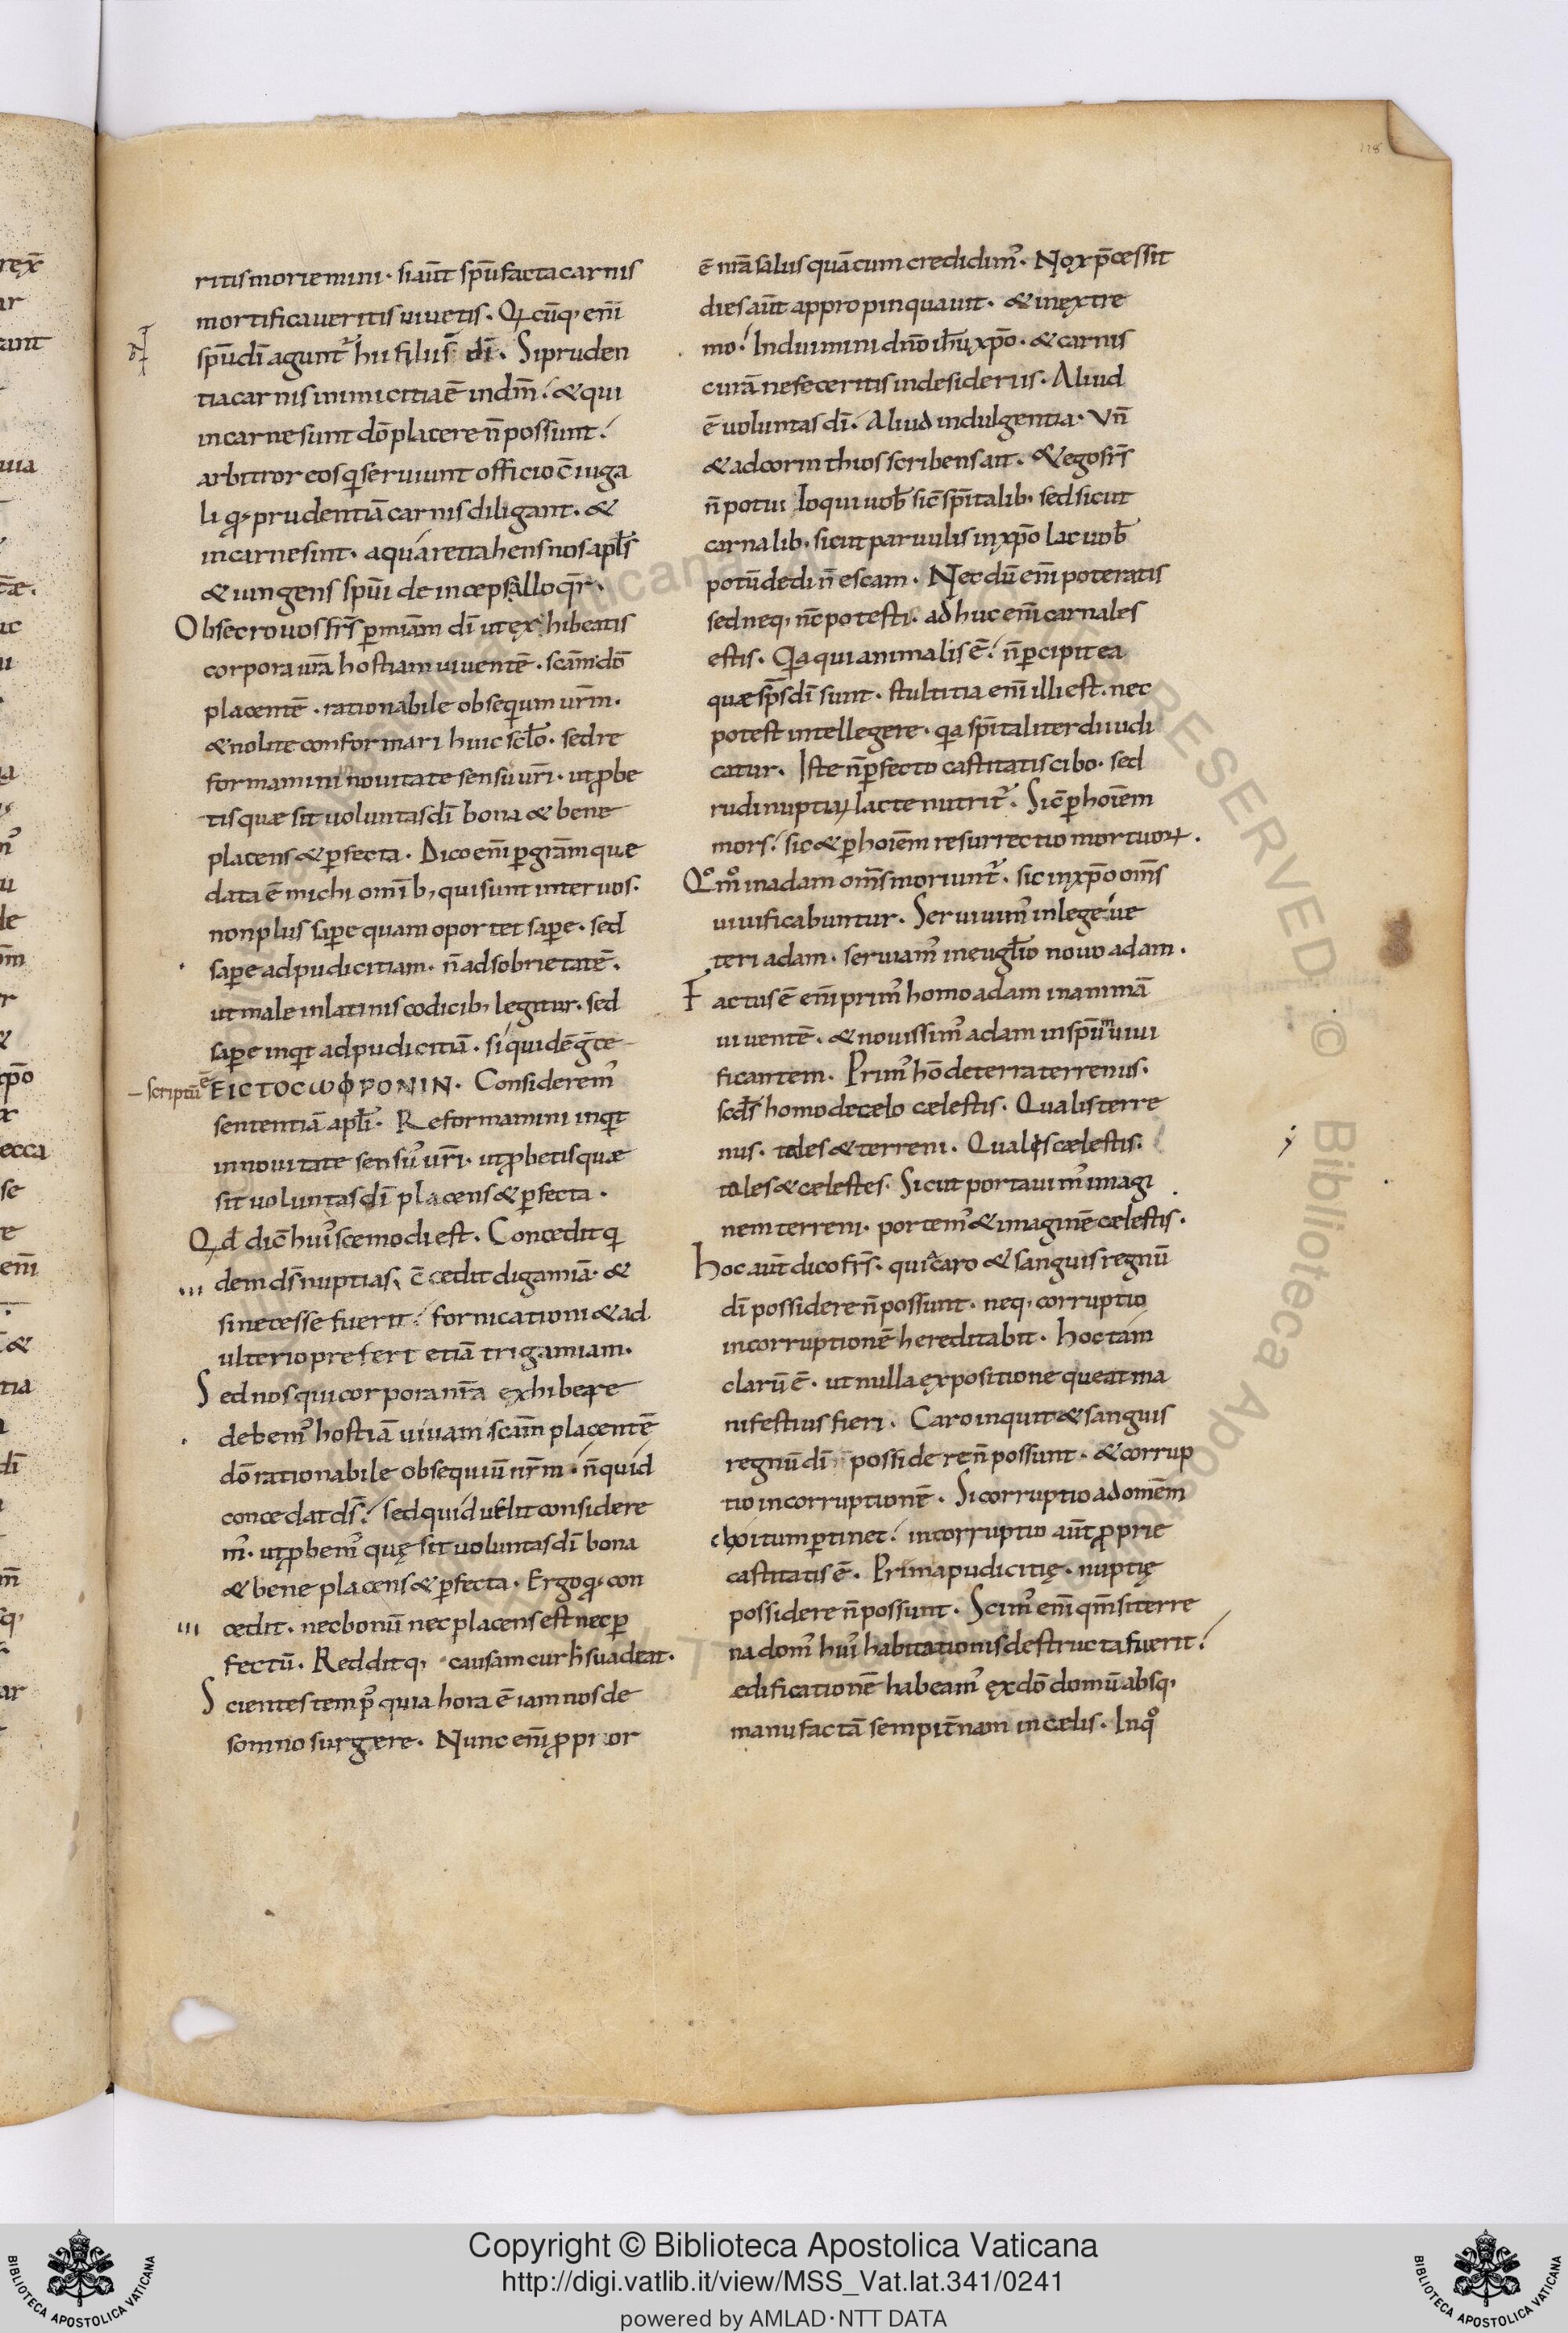 118
ritis moriemini · si aūt spū facta carnis
mortificaueritis uiuetis · Q̣cūq; enī
spū dī agunt᷑ hii filii s̄ dī · Si pruden
tia carnis inimicitia ē in dm̄ ·́ & qui
in carne sunt dō placere n̄ possunt ·́
arbitror eos qi seruiunt officio c̄iuga
li q; prudentiā carnis diligant · &
in carne sint · a qua retrahens nos apl̄s
& iungens spūi deinceps alloq̄r ·
Obsecro uos frs̄ p miam̄ dī ut exhibeatis
corpora ur̄a hostiam uiuentē · scam̄ dō
placentē · rationabile obsequium urm̄ ·
& nolite conformari huic sc̄lo · sed re
formamini nouitate sensu uri · ut p̱be
tis quæ sit uoluntas dī bona & bene
placens & pfecta · Dico enī p gram̄ que
data ē michi omīb; qui sunt inter uos ·
non plus sape quam oportet sape · sed
sape ad pudicitiam · n̄ ad sobrietatē ·
ut male in latinis codicib; legitur · sed
sape inqt ad pudicitiā · siquidē gc̄e
– scriptū ē ΕΙCΤΟCωΦΡΟΝΙΝ · Considerem᷒
sententiā apl̄i · Reformamini inqt
in nouitate sensu᷒ ur̄i · ut p̱betis quæ
sit uoluntas dī placens & pfecta ·
Qd̄ dic̄ hui᷒scemodi est · Concedit qi
dem ds̄ nuptias, c̄cedit digamiā · &
si necesse fuerit ·́ fornicationi & ad
ulterio prefert etiā trigamiam ·
Sed nos qui corpora nr̄a exhibere
debem᷒ hostiā uiuam scam̄ placentē
dō rationabile obsequiū nrm̄ · n̄ quid
concedat ds̄ ·́ sed quid uelit considere
m᷒ · ut p̱bem᷒ quę sit uoluntas dī bona
& bene placens & pfecta · Ergo q; con
cedit · nec bonū nec placens est nec p
fectū · Reddit q; causam cur h̄ suadeat ·
Scientes temp᷒ quia hora ē iam nos de
somno surgere · Nunc enī p̱pior
ē nrā salus quā cum credidim᷒ · Nox p̄cessit
dies aūt appropinquauit · & in extre
mo ·́ Induimini dnō ihū xp̄o · & carnis
curā ne feceritis in desideriis · Aliud
ē uoluntas dī ·́ Aliud indulgentia · Vn̄
& ad corinthios scribens ait · & ego frs̄
n̄ potui loqui uob̄ sic̄ spi̅talib; sed sicut
carnalib; sicut paruulis in xp̄o lac uob̄
potū dedi n̄ escam · Necdū enī poteratis
sed neq; nc̄ potesti · adhuc enī carnales
estis · Qia qui animalis ē ·́ n̄ pcipit ea
quæ sps̄ dī sunt · stultitia enī illi est · nec
potest intellegere · qia spi̅taliter diiudi
catur · Iste n̄ pfecto castitatis cibo · sed
rudi nuptiaꝝ lacte nutrit᷑ · Sic̄ p hoīem
mors ·́ sic & p hoīem resurrectio mortuoꝝ ·
Qom̊ in adam oms̄ moriunt᷑ · sic in xp̄o oms̄
uiuificabuntur · Seruiuim᷒ in lege ue
teri adam · seruiam᷒ in eugl̄io nouo adam ·
Factus ē enī prim᷒ homo adam in animā
uiuentē · & nouissim᷒ adam in spūm uiui
ficantem · Prim᷒ hō de terra terrenus ·
scd̄s homo de cælo cælestis · Qualis terre
nus · tales & terreni · Qualis cælestis ·
tales & cælestes · Sicut portauim᷒ imagi
nem terreni · portem᷒ & imaginē cælestis ·
Hoc aūt dico frs̄ · qui caro & sanguis regnū
dī possidere n̄ possunt · neq; corruptio
incorruptionē hereditabit · Hoc tam
clarū ē · ut nulla expositione queat ma
nifestius fieri · Caro inquit & sanguis
regnū dī possidere n̄ possunt · & corrup
tio incorruptionē · Si corruptio ad omēm
choitum ptinet ·́ incorruptio aūt p̱prie
castitatis ē · Prima pudicitię · nuptię
possidere n̄ possunt · Scim᷒ enī qm̄ si terre
na dom᷒ hui᷒ habitationis destructa fuerit ·́
ædificationē habeam᷒ ex dō domū absq;
manu factā sempit̄nam in cælis · In qo
Copyright © Biblioteca Apostolica Vaticana
http://digi.vatlib.it/view/MSS_Vat.lat.341/0241
powered by AMLAD·NTT DATA
BIBLIOTECA APOSTOLICA VATICANA
BIBLIOTECA APOSTOLICA VATICANA